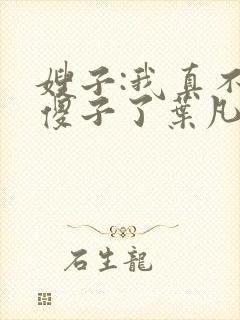 嫂子:我真不
傻子了葉凡
石生龍